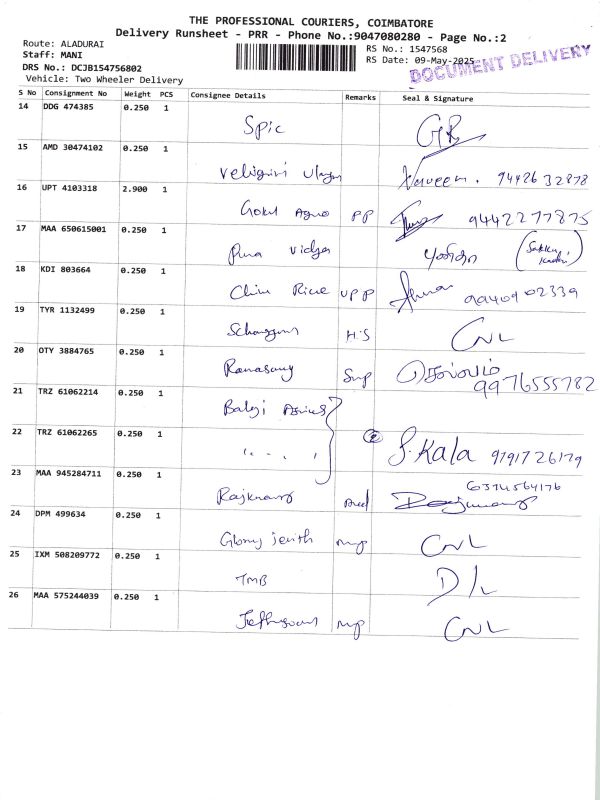 THE PROFESSIONAL COURIERS, COIMBATORE
Delivery Runsheet - PRR - Phone No.:9047080280 - Page No.:2
Route: ALADURAI
RS No.: 1547568
Staff: MANI
RS Date: 09-May-2025
DOCUMENT DELIVERY
DRS No.: DCJB154756802
Vehicle: Two Wheeler Delivery
S No Consignment No Weight PCS Consignee Details Remarks Seal & Signature
14 DDG 474385 0.250 1 Spic
15 AMD 30474102 0.250 1 Naveen. 9442632878
16 UPT 4103318 2.900 1 Gokul Agro PP 9442277875
17 MAA 650615001 0.250 1 Vidya
18 KDI 803664 0.250 1 UPP
19 TYR 1132499 0.250 1 H.S CNL
20 OTY 3884765 0.250 1 Ramasamy 9976555782
21 TRZ 61062214 0.250 1 Balaji
22 TRZ 61062265 0.250 1 " " 2 S. Kala 9791726179
23 MAA 945284711 0.250 1 6374564176
24 DPM 499634 0.250 1 MP CNL
25 IXM 508209772 0.250 1 TMB D/L
26 MAA 575244039 0.250 1 MP CNL